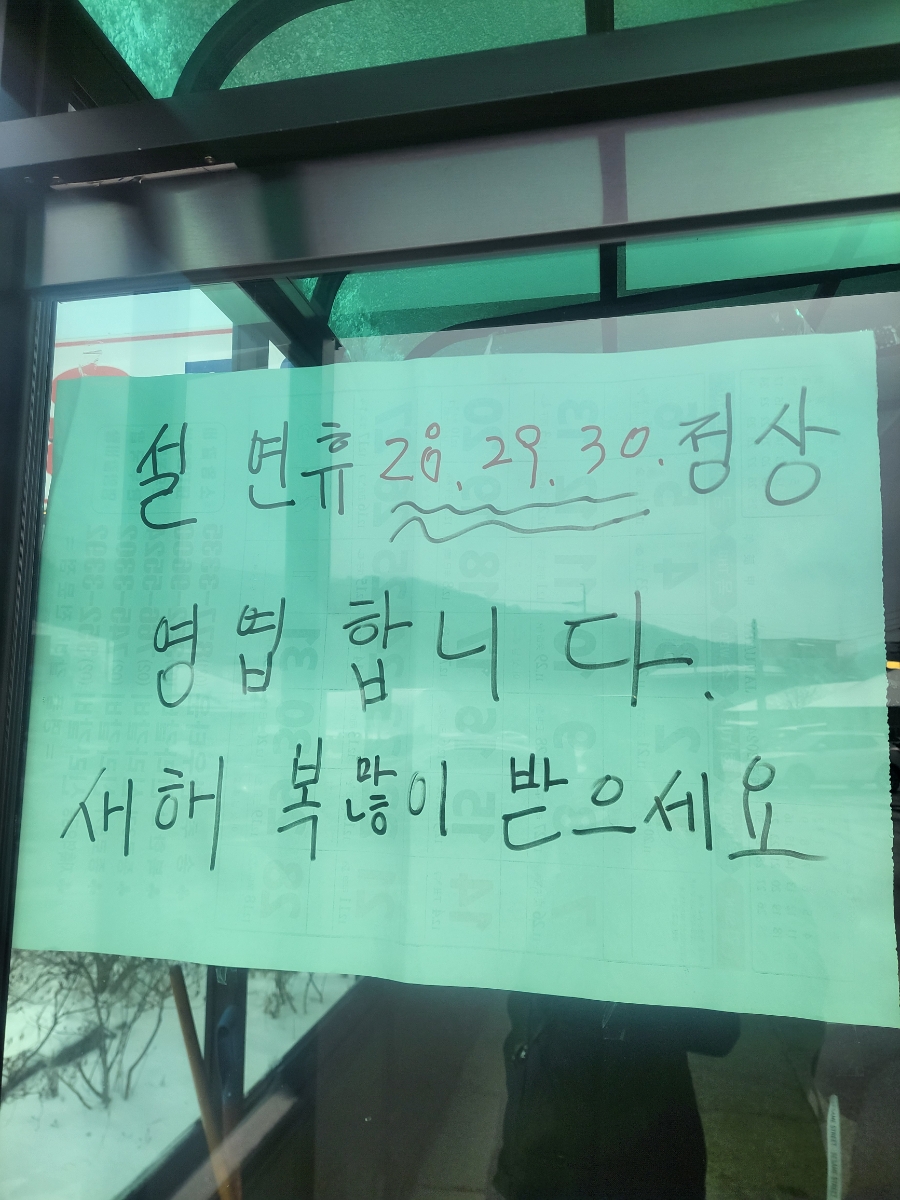 설 연휴 28. 29. 30. 정상
영업합니다.
새해 복 많이 받으세요